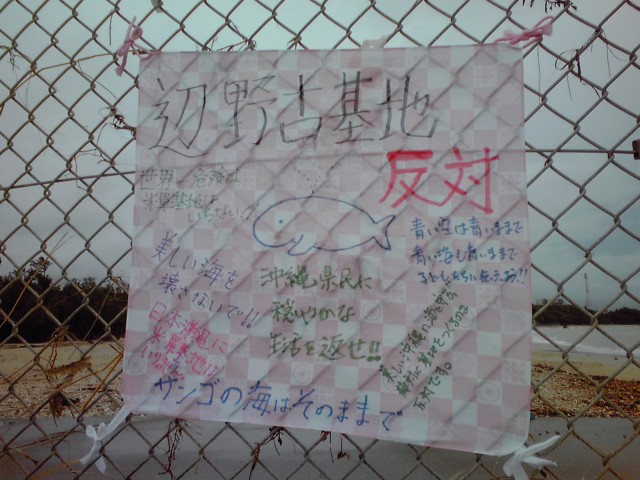 辺野古基地
反対
世界一危険な
米軍基地は
いらない!!
青い空は青いままで
青い海も青いままで
子どもたちに伝えよう!!
美しい海を
壊さないで!!
沖縄県民に
穏やかな
生活を返せ!!
日本沖縄に
米軍基地は
美しい沖縄の海を
反対です。
サンゴの海はそのままで